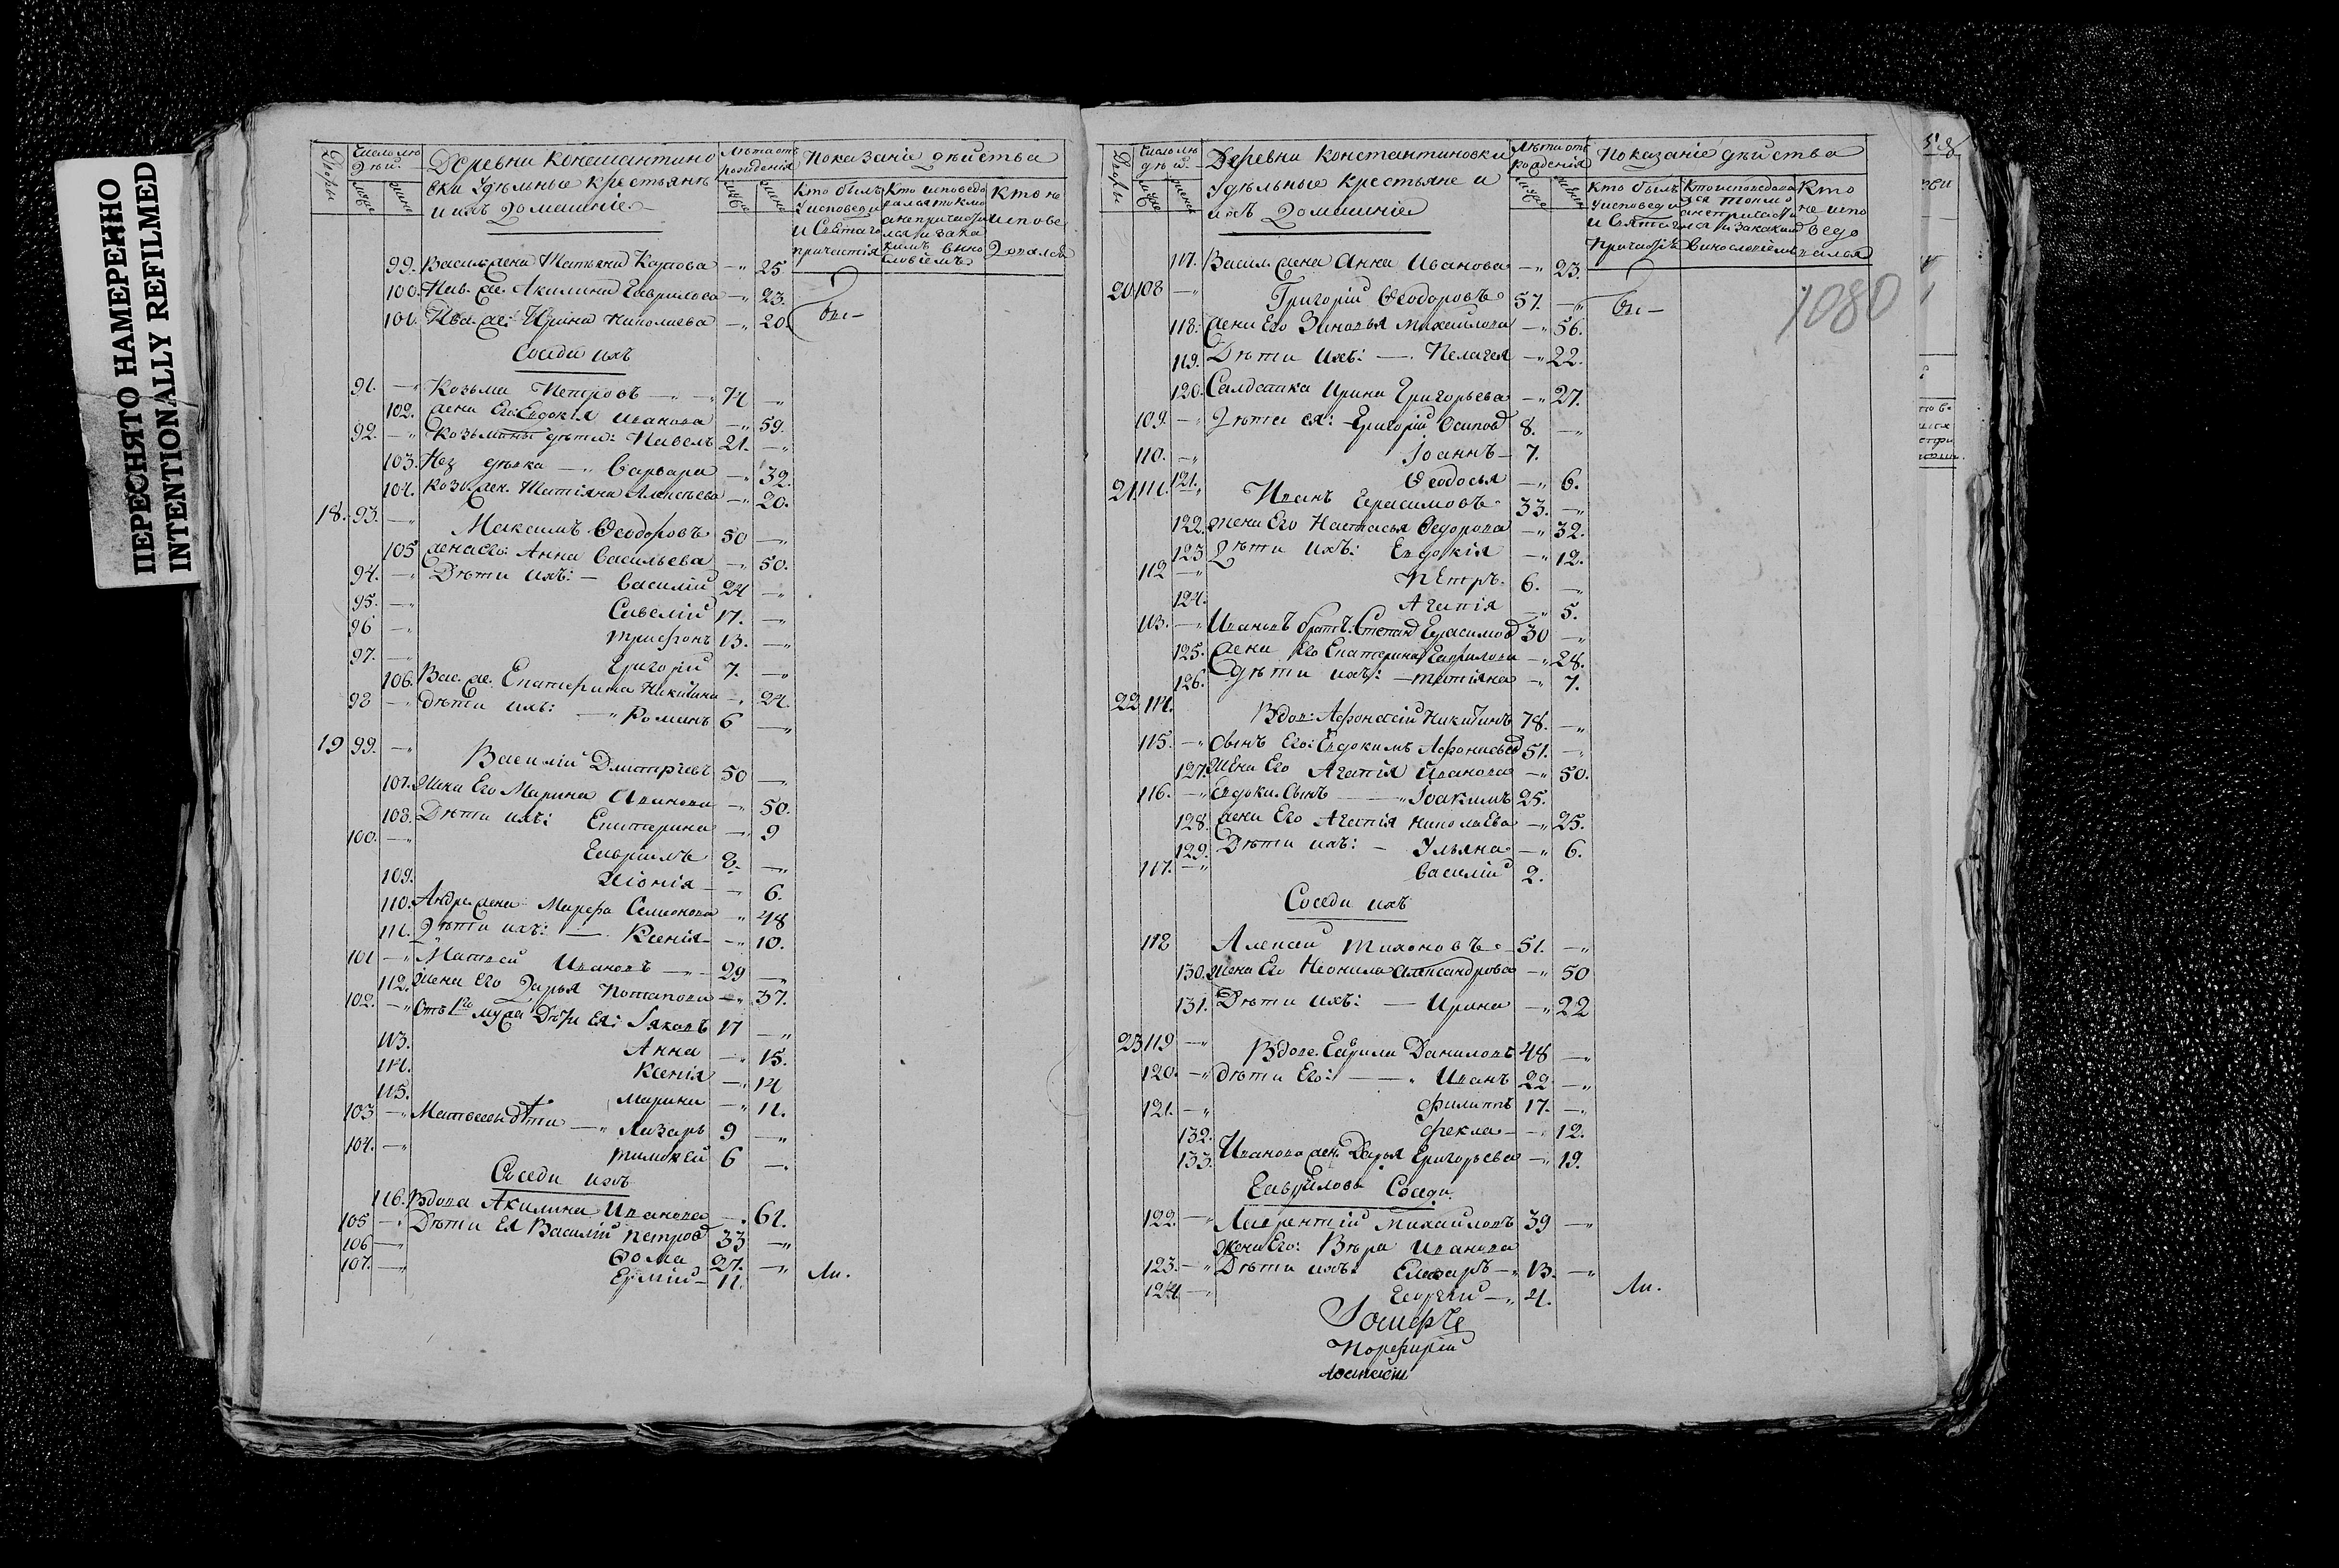 ПЕРЕСНЯТО НАМЕРЕННО
INTENTIONALLY REFILMED
Дворы
Число лю
дѣй.
Деревни Константино
вки Удѣльные крестьянѣ
и ихъ Домашніе.
Лѣта отъ
рожденія
Показаніе дѣйства
Кто былъ
у исповеди
и Святаго
причастія
Кто исповедо
вался токмо
а не причасти
лся и за ка
кимъ вино
словіемъ
Кто не
испове
довался
99. Васил. жена Татьяна Карпова — 25.
100. Пав. же. Акилина Гаврилова — 23.
101. Ива. же: Ирина Николаева — 20.
бы —
Соседи ихъ
91. — Козьма Петровъ — 74 —
102. жена Его: Евдокія Иванова — 59.
92. — Козьмины дѣти: Павелъ 21. —
103. Нез дѣвка — Варвара — 32.
104. Козь. жен. Татіяна Алексѣева — 20.
18. 93. — Максимъ Ѳеодоровъ 50 —
105 жена его: Анна Васильева — 50.
94. — Дѣти ихъ: — Василій 24 —
95. — Савелій 17. —
96 — Трифонъ 13. —
97. — Григорій 7. —
106. Вас. же. Екатерина Никитина — 24.
98 — дѣти ихъ: — Романъ 6 —
19 99. — Василій Дмитріевъ 50 —
107. Жена Его Марина Иванова — 50.
108. Дѣти ихъ: Екатерина — 9
100. — Гавріилъ 8. —
109. Хіонія — 6.
110. Андре. жена Марфа Семіонова — 48
111. Дѣти ихъ: — Ксенія — 10.
101 — Матвей Ивановъ — 29 —
112. Жена Его Дарья Потапова — 37.
102. — Отъ 1го мужа Дѣти Ея: Іаковъ 17 —
113. Анна — 15.
114. Ксенія — 14
115. Марина — 11.
103 — Матвеевы дѣти — Лазарь 9 —
104. — Тимофей 6 —
Соседи ихъ
116. Вдова Акилина Иванова — 61.
105 — Дѣти Ея Василій Петров 33 —
106 — Ѳома 27. —
107. — Ермій — 11.
Ли.
Дворы
Число лю
дѣй.
Деревни Константиновки
Удѣльные крестьяне и
ихъ Домашніе
Лѣта отъ
рожденія
Показаніе дѣйства
Кто былъ
у исповеди
и Святаго
причастія
Кто исповедова
лся токмо
а не причасти
лся и за какимъ
винословіемъ
Кто
не испо
ведо
вался
1080
117. Васил. жена Анна Иванова — 23.
20 108 — Григорій Ѳеодоровъ 57. —
бы —
118. жена Его Зиновья Михайлова — 56.
119. Дѣти ихъ: — Пелагея — 22.
120. Салдатка Ирина Григорьева — 27.
109. — Дѣти ея: Григорій Осипов 8. —
110. — Іоаннъ — 7.
121. Ѳеодосья — 6.
21. 111. — Иванъ Герасимовъ 33. —
122. жена Его Настасья Ѳедорова — 32.
123 Дѣти ихъ: Евдокія — 12.
112 — Петръ. 6. —
124. Агапія — 5.
113. — Ивановъ братъ: Степанъ Герасимов 30 —
125. жена Его Екатерина Гаврилова — 28.
126. дѣти ихъ: — Татіяна — 7.
22 114. Вдов: Афонасій Никитинъ 78. —
115. — Сынъ Его: Евдокимъ Афонасьев 51. —
127. Жена Его Агапія Иванова — 50.
116. — Евдоки. Сынъ — Іоакимъ 25.
128. жена Его Агапія Николаева — 25.
129. Дѣти ихъ: — Ульяна — 6.
117. — Василій 2.
Соседи ихъ
118 Алексей Тихоновъ — 51. —
130. жена Его Неонила Александрова — 50
131. Дѣти ихъ: — Ирина — 22
23 119 — Вдове. Гаврила Даниловъ 48 —
120. — дѣти Его: — Иванъ 22. —
121. — Филиппъ 17. —
132. Фекла — 12.
133. Иванова жен. Дарья Григорьева — 19.
Гавриловы Соседи.
122. — Лаврентій Михайловъ 39 —
Жена Его: Вѣра Иванова
123. — Дѣти ихъ: Елеазаръ — 13. —
124. — Георгій — 4.
Ли.
Іосифъ
Порфирій
Аѳанасій